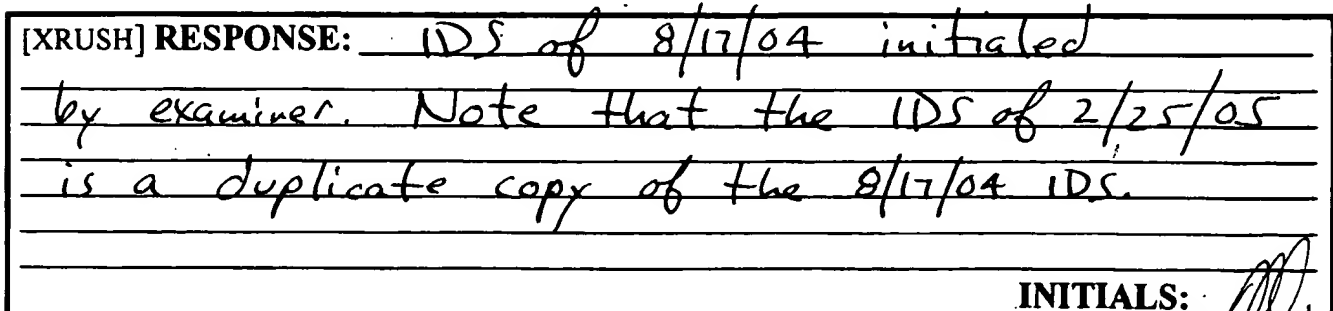 [XRUSH] RESPONSE: IDS of 8/17/04 initialed
by examiner. Note that the IDS of 2/25/05
is a duplicate copy of the 8/17/04 IDS.
INITIALS: